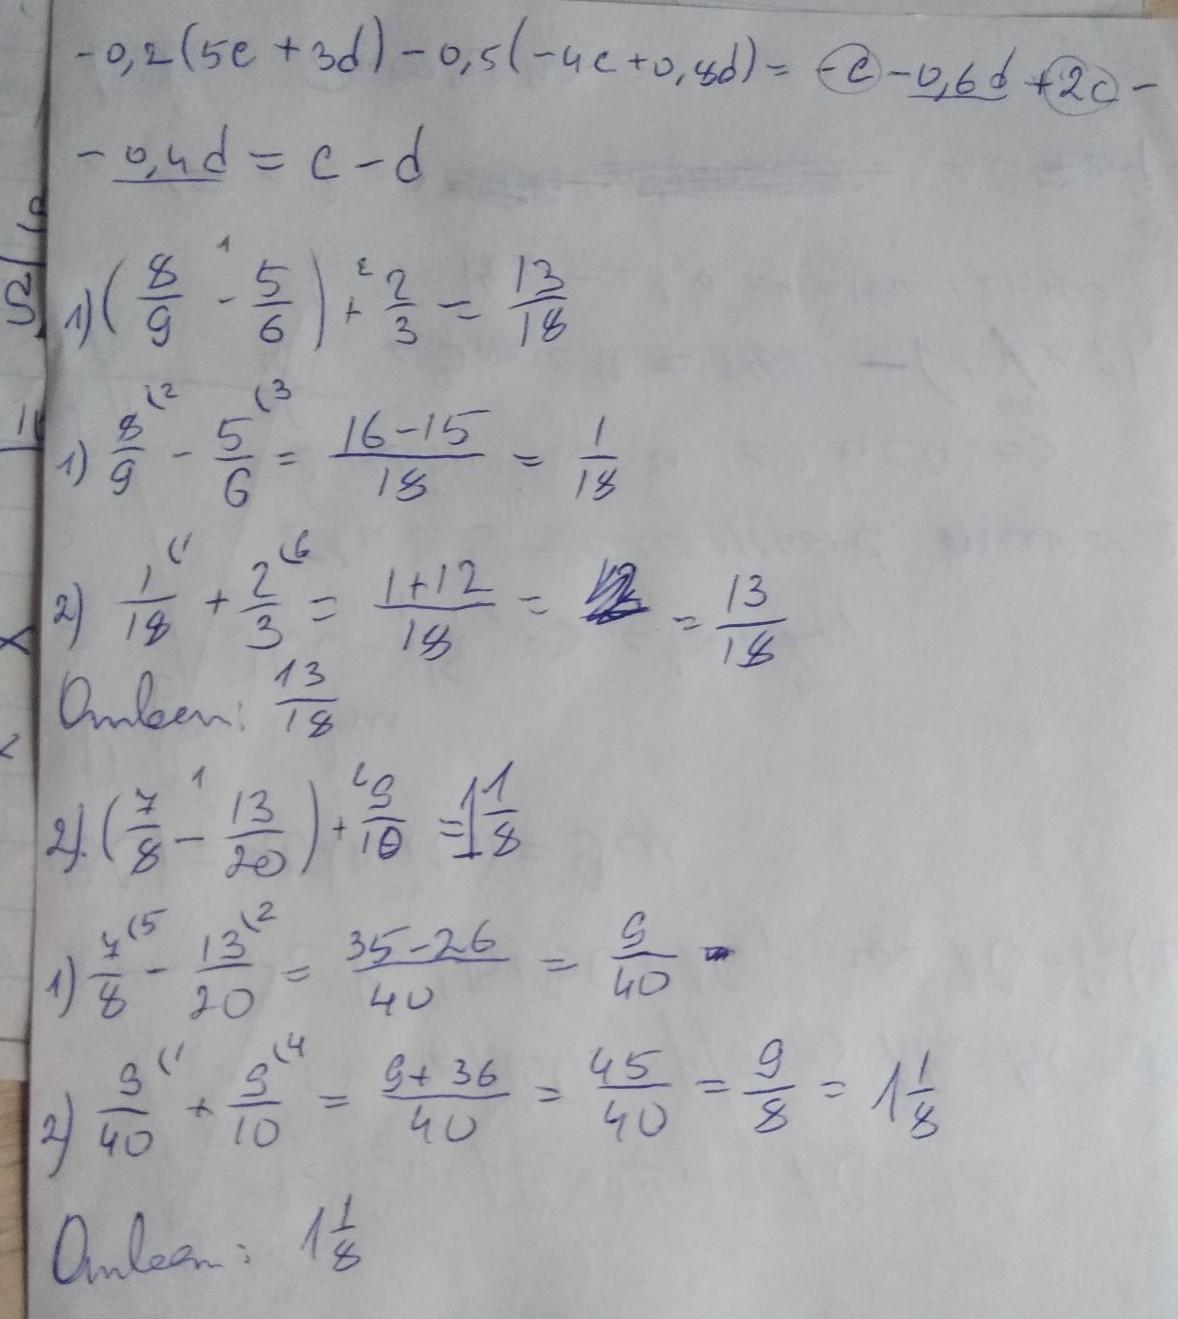 -0,2(5c+3d)-0,5(-4c+0,8d)= -c-0,6d+2c-
-0,4d=c-d
1) (8/9 - 5/6) + 2/3 = 13/18
1) 8/9 (2 - 5/6 (3 = 16-15/18 = 1/18
2) 1/18 (1 + 2/3 (6 = 1+12/18 = = 13/18
Ответ: 13/18
2). (7/8 - 13/20) + 9/10 = 1 1/8
1) 7/8 (5 - 13/20 (2 = 35-26/40 = 9/40
2) 9/40 (1 + 9/10 (4 = 9+36/40 = 45/40 = 9/8 = 1 1/8
Ответ: 1 1/8